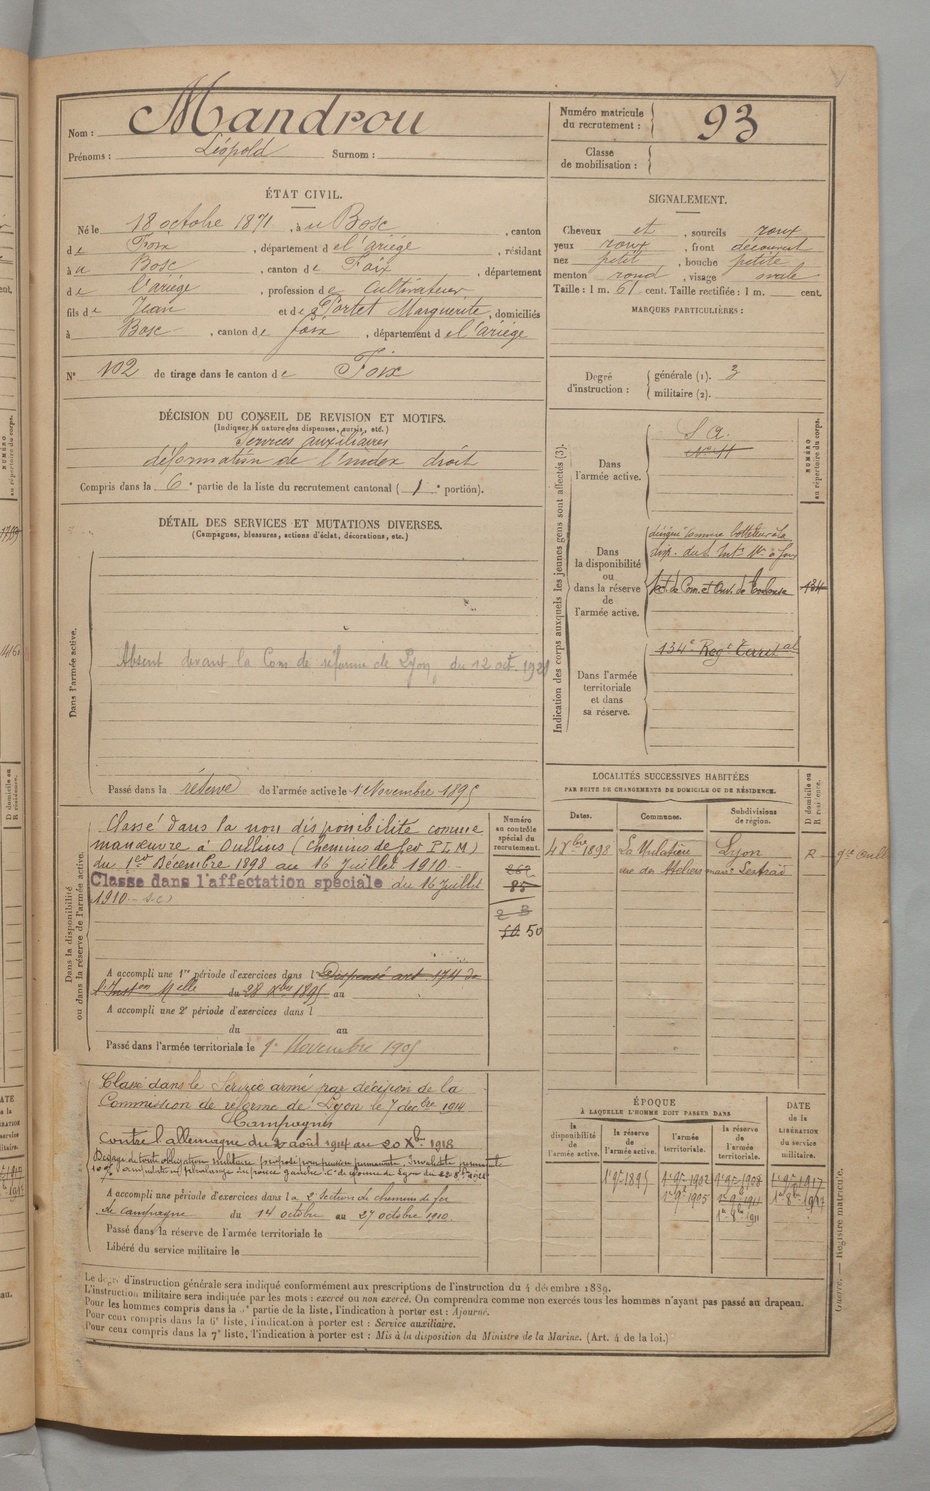 Nom : Mandrou
Prénoms : Léopold Surnom :
Numéro matricule du recrutement : 93
Classe de mobilisation :
ÉTAT CIVIL.
Né le 18 octobre 1871, à u Bosc, canton
de Foix, département de l'ariège, résidant
à u Bosc, canton de Foix, département
de l'ariège, profession de Cultivateur
fils de Jean et de Portet Marguerite, domiciliés
à Bosc, canton de foix, département de l'ariège
N° 102 de tirage dans le canton de Foix
SIGNALEMENT.
Cheveux et, sourcils roux
yeux roux, front découvert
nez petit, bouche petite
menton rond, visage ovale
Taille : 1 m. 61 cent. Taille rectifiée : 1 m. cent.
MARQUES PARTICULIÈRES :
Degré d'instruction : générale (1). 3
militaire (2).
DÉCISION DU CONSEIL DE REVISION ET MOTIFS.
(Indiquer la nature des dispenses, sursis, etc.)
Services auxiliaires
déformation de l'index droit
Compris dans la 6e partie de la liste du recrutement cantonal (1e portion).
DÉTAIL DES SERVICES ET MUTATIONS DIVERSES.
(Campagnes, blessures, actions d'éclat, décorations, etc.)
Dans l'armée active.
Absent devant la Com de réforme de Lyon, du 12 oct.
Passé dans la réserve de l'armée active le 1 Novembre 1895
Indication des corps auxquels les jeunes gens sont affectés (3).
NUMÉRO au répertoire du corps.
Dans l'armée active.
S A.
N° 11
Dans la disponibilité ou dans la réserve de l'armée active.
de Com. et Ouv. de Toulouse
134
Dans l'armée territoriale et dans sa réserve.
134e Regt Territal
Dans la disponibilité ou dans la réserve de l'armée active.
Classé dans la non disponibilité comme
manœuvre à Oullins (Chemins de fer P L M)
du 1er Décembre 1898 au 16 Juillet 1910 -
Classé dans l'affectation spéciale du 16 Juillet
1910
Numéro au contrôle spécial du recrutement.
85
50
A accompli une 1re période d'exercices dans l Dispensé art 174 de
l'Inston Melle du 28 Xbre 1895 au
A accompli une 2e période d'exercices dans l
du au
Passé dans l'armée territoriale le 1er Novembre 1905
LOCALITÉS SUCCESSIVES HABITÉES
PAR SUITE DE CHANGEMENTS DE DOMICILE OU DE RÉSIDENCE.
Dates. Communes. Subdivisions de région. D domicile ou R résidence.
1898 La Mulatière Lyon R
rue des Ateliers
Classé dans le Service armé par décision de la
Commission de réforme de Lyon le 7 décbre 1914
Campagnes
Contre l'allemagne du 2 août 1914 au 20 Xbre 1918
Dégagé de toute obligation militaire
A accompli une période d'exercices dans la 2e Section de chemin de fer
de campagne du 14 octobre au 27 octobre 1910.
Passé dans la réserve de l'armée territoriale le
Libéré du service militaire le
ÉPOQUE À LAQUELLE L'HOMME DOIT PASSER DANS
DATE de la LIBÉRATION du service militaire.
la disponibilité de l'armée active. la réserve de l'armée active. l'armée territoriale. la réserve de l'armée territoriale.
1er 9bre 1895 1er 9bre 1902 1er 9bre 1908 1er 9bre 1917
1er 9bre 1905 1er 9bre 1911
Le degré d'instruction générale sera indiqué conformément aux prescriptions de l'instruction du 4 décembre 1889.
L'instruction militaire sera indiquée par les mots : exercé ou non exercé. On comprendra comme non exercés tous les hommes n'ayant pas passé au drapeau.
Pour les hommes compris dans la partie de la liste, l'indication à porter est : Ajourné.
Pour ceux compris dans la 6e liste, l'indication à porter est : Service auxiliaire.
Pour ceux compris dans la 7e liste, l'indication à porter est : Mis à la disposition du Ministre de la Marine. (Art. 4 de la loi.)
Guerre. — Registre matricule.